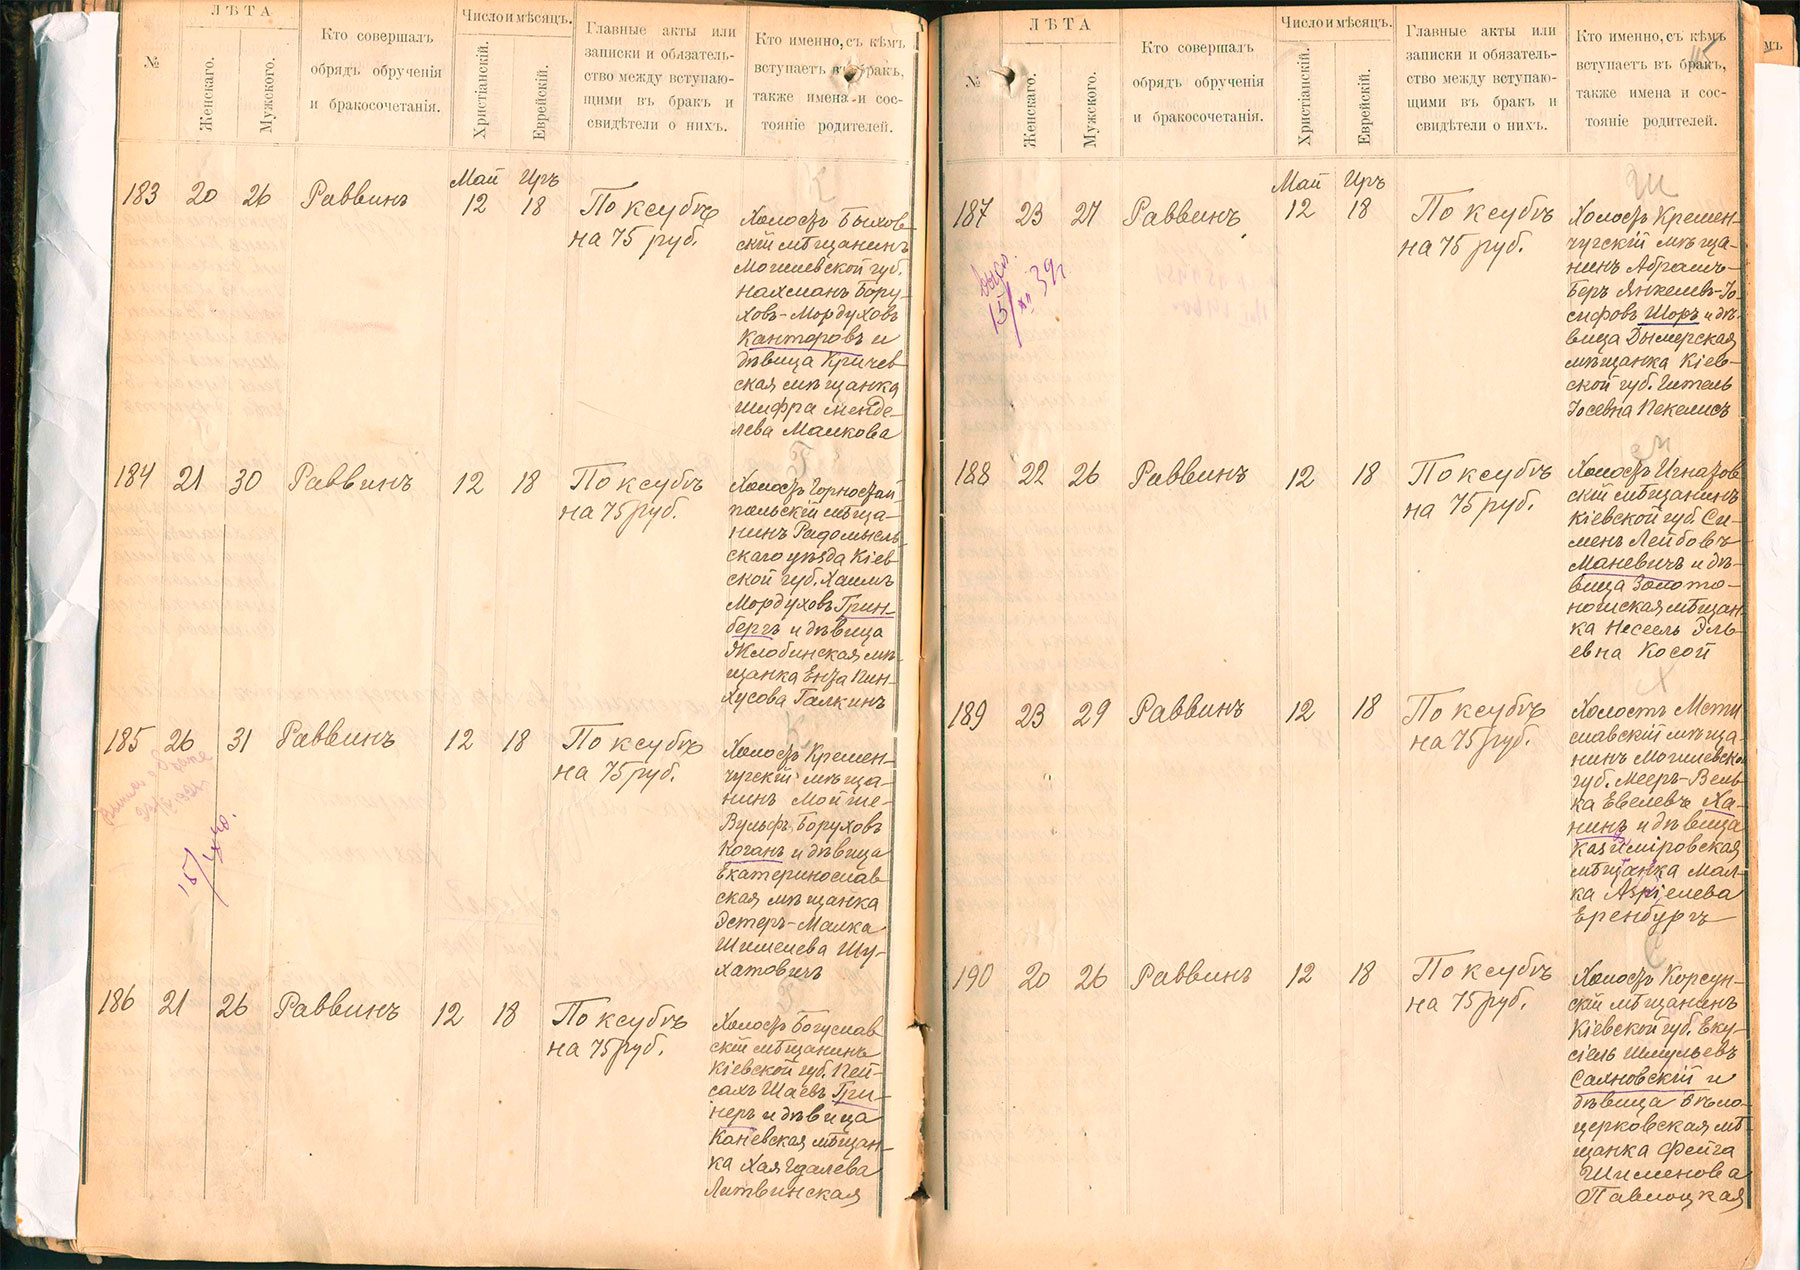 №
ЛѢТА
Женскаго.
Мужского.
Кто совершалъ
обрядъ обрученія
и бракосочетанія.
Число и мѣсяцъ.
Христіанскій.
Еврейскій.
Главные акты или
записки и обязатель-
ство между вступаю-
щими въ бракъ и
свидѣтели о нихъ.
Кто именно, съ кѣмъ
вступаетъ въ бракъ,
также имена и сос-
тояніе родителей.
Май Иръ
К
183 20 26 Раввинъ 12 18 По ксубѣ
на 75 руб.
Холостъ Быхов-
скій мѣщанинъ
Могилевской губ.
Нахманъ Бору-
ховъ-Мордуховъ
Канторовъ и
дѣвица Кричев-
ская мѣщанка
Шифра Менде-
лева Малкова
Г
184 21 30 Раввинъ 12 18 По ксубѣ
на 75 руб.
Холостъ Горностай-
польскій мѣща-
нинъ Радомысль-
скаго уѣзда Кіев-
ской губ. Хаимъ
Мордуховъ Грин-
бергъ и дѣвица
Жлобинская мѣ-
щанка Ента Пин-
хусова Галкинъ
К
185 26 31 Раввинъ 12 18 По ксубѣ
на 75 руб.
Холостъ Кремен-
чугскій мѣща-
нинъ Мойше-
Вульфъ Боруховъ
Коганъ и дѣвица
Екатеринослав-
ская мѣщанка
Эстеръ-Малка
Шимелева Шу-
хатовичъ
Г
186 21 26 Раввинъ 12 18 По ксубѣ
на 75 руб.
Холостъ Богуслав-
скій мѣщанинъ
Кіевской губ. Пей-
сахъ Шаевъ Гри-
неръ и дѣвица
Каневская мѣщан-
ка Хая Гдалева
Литвинская
№
ЛѢТА
Женскаго.
Мужского.
Кто совершалъ
обрядъ обрученія
и бракосочетанія.
Число и мѣсяцъ.
Христіанскій.
Еврейскій.
Главные акты или
записки и обязатель-
ство между вступаю-
щими въ бракъ и
свидѣтели о нихъ.
Кто именно, съ кѣмъ
вступаетъ въ бракъ,
также имена и сос-
тояніе родителей.
Май Иръ
Ш
187 23 27 Раввинъ 12 18 По ксубѣ
на 75 руб.
Холостъ Кремен-
чугскій мѣща-
нинъ Абрамъ-
Беръ Янкелевъ-Іо-
сифовъ Шоръ и дѣ-
вица Дымерская
мѣщанка Кіев-
ской губ. Гитель
Іосевна Пекелисъ
М
188 22 26 Раввинъ 12 18 По ксубѣ
на 75 руб.
Холостъ Игнатов-
скій мѣщанинъ
Кіевской губ. Си-
менъ Лейбовъ
Маневичъ и дѣ-
вица Золото-
ношская мѣщан-
ка Нессель Эль-
евна Косой
Х
189 23 29 Раввинъ 12 18 По ксубѣ
на 75 руб.
Холостъ Мсти-
славскій мѣща-
нинъ Могилевской
губ. Мееръ-Вель-
ка Евелевъ Ха-
нинъ и дѣвица
Казиміровская
мѣщанка Мал-
ка Азріелева
Еренбургъ
С
190 20 26 Раввинъ 12 18 По ксубѣ
на 75 руб.
Холостъ Корсун-
скій мѣщанинъ
Кіевской губ. Еку-
сіель Шмульевъ
Саяновскій и
дѣвица Бѣло-
церковская мѣ-
щанка Фейга
Шименова
Павлоцкая